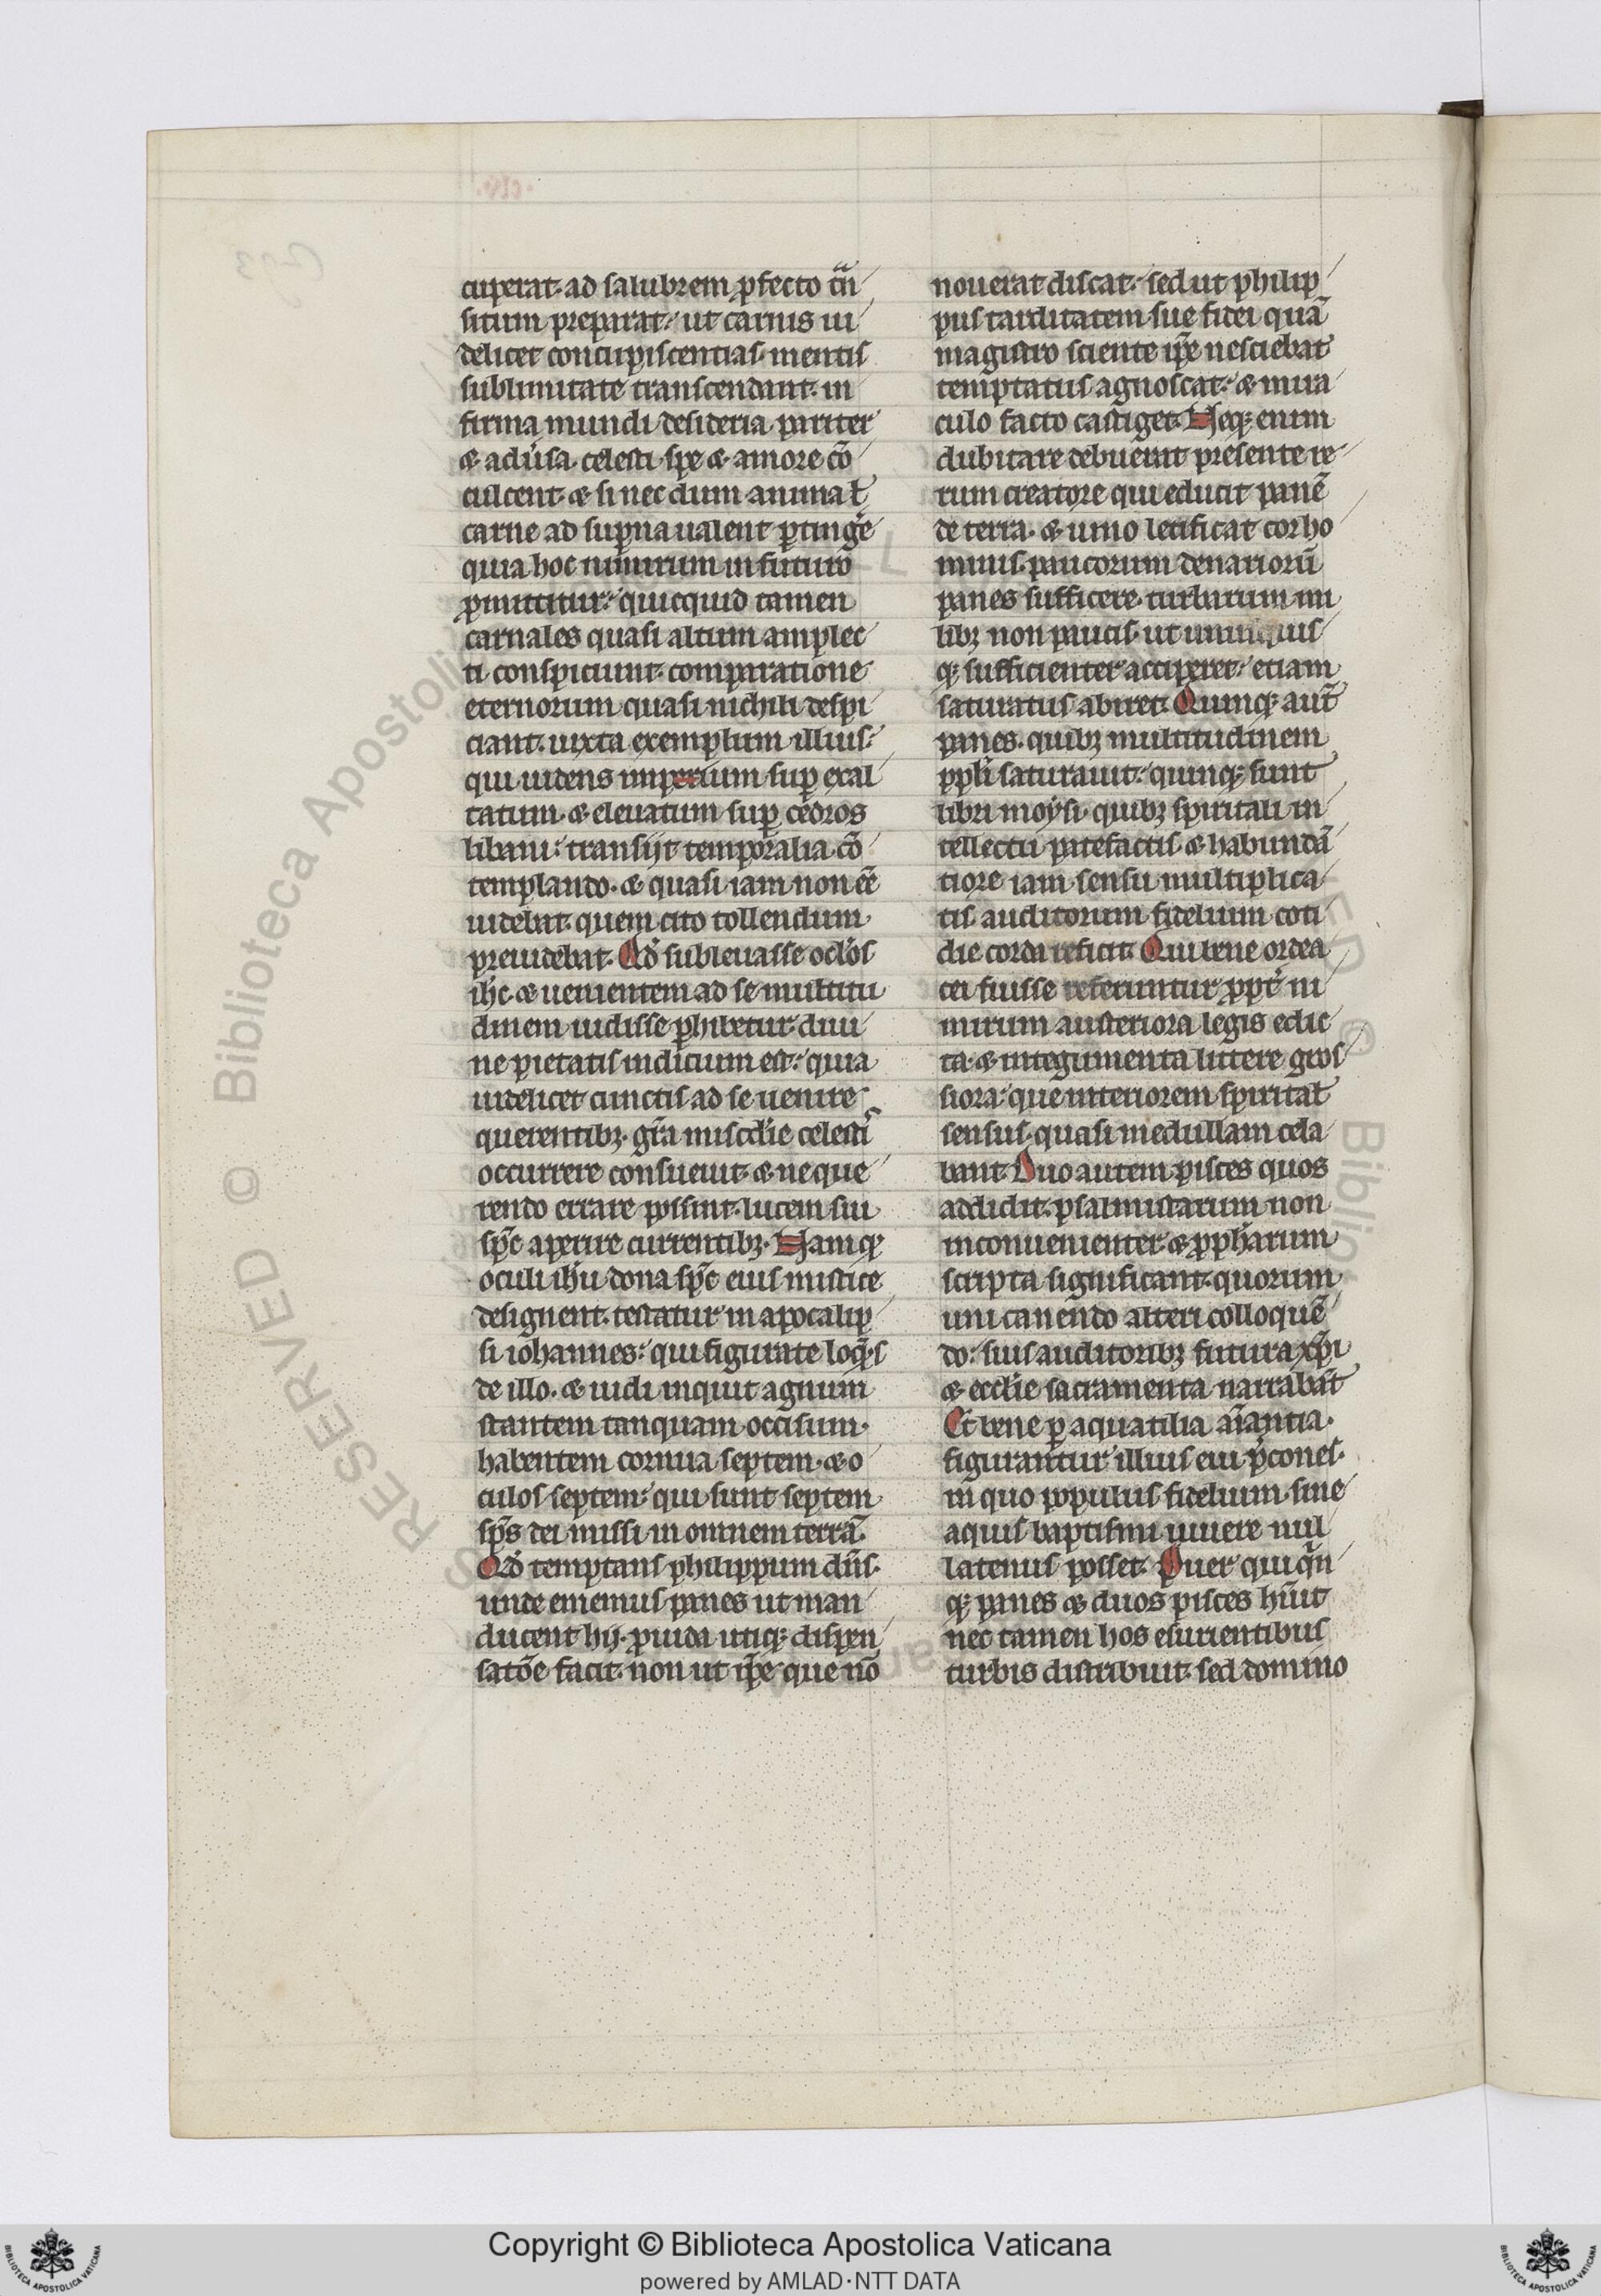 cuperat· ad salubrem ꝓfecto tͣn
situm preparat· ut carnis ui
delicet concupiscentias· mentis
sublimitate transcendant· in
firma mundi desideria pariter
& aduͥsa· celesti spe & amore cō
culcent· & si nec dum animat̄
carne ad suꝑna ualent ꝑtinge᷑
quia hoc nimirum in futuro
ꝓmittitur· quicquid tamen
carnales quasi altum amplec
ti conspiciunt· comparatione
eternorum quasi nichili despi
ciant· iuxta exemplum illius·
qui uidens impium suꝑ exal
tatum· & eleuatum suꝑ cedros
libani· transijt temporalia cō
templando· & quasi iam non eē
uidebat· quem cito tollendum
preuidebat· Qđ subleuasse oclos
ihc̄· & uenientem ad se multitu
dinem uidisse ꝑhibetur· diui
ne pietatis indicium est· quia
uidelicet cunctis ad se uenire
querentibꝫ· gr̄a misc̄die celestͥ
occurrere consueuit· & ne que
rendo errare possint· lucem sui
sp̄c aperire currentibꝫ· Namqꝫ
oculi ih̄u dona sp̄c eius mistice
designent· testatur in apocalip
si iohannes· qui figurate loq̄ns
de illo· & uidi inquit agnum
stantem tanquam occisum·
habentem cornua septem· & o
culos septem· qui sunt septem
sp̄s dei missi in omnem terrā·
Qđ temptans philippum dn̄s·
unde ememus panes ut man
ducent hij· ꝓuida utiqꝫ dispen
satōe facit· non ut ip̄e que nō
nouerat discat· sed ut philip
pus tarditatem sue fidei quā
magistro sciente ip̄e nesciebat
temptatus agnoscat· & mira
culo facto castiget· Neqꝫ enim
dubitare debuerat presente re
rum creatore qui educit panē
de terra· & uino letificat cor ho
minis· paucorum denariorū
panes sufficere· turbarum mi
libꝫ non paucis· ut unusquis
qꝫ sufficienter acciperet· etiam
saturatus abiret· Quinqꝫ aut̄
panes· quibꝫ multitudinem
ppl̄i saturauit· quinqꝫ sunt
libri moysi· quibꝫ spiritali in
tellectu patefactis & habundā
tiore iam sensu multiplica
tis auditorum fidelium coti
die corda reficit· Qui bene ordea
cei fuisse referuntur ꝓpt̄ ni
mirum austeriora legis edic
ta· & integumenta littere gros
siora· que interiorem spiritat̄
sensus· quasi medullam cela
bant· Duo autem pisces quos
addidit· psalmistarum non
inconuenienter & ꝓph̄arum
scripta significant· quorum
uni canendo alteri colloquē
do· suis auditoribꝫ futura xp̄i
& eccl̄ie sacramenta narrabāt
Et bene ꝑ aquatilia aīantia·
figurantur illius eui p̄cones·
in quo populus fidelium sine
aquis baptismi uiuere nul
latenus posset· Puer qui qn̄
qꝫ panes & duos pisces hūit
nec tamen hos esurientibus
turbis distribuit· sed domino
Copyright © Biblioteca Apostolica Vaticana
powered by AMLAD·NTT DATA